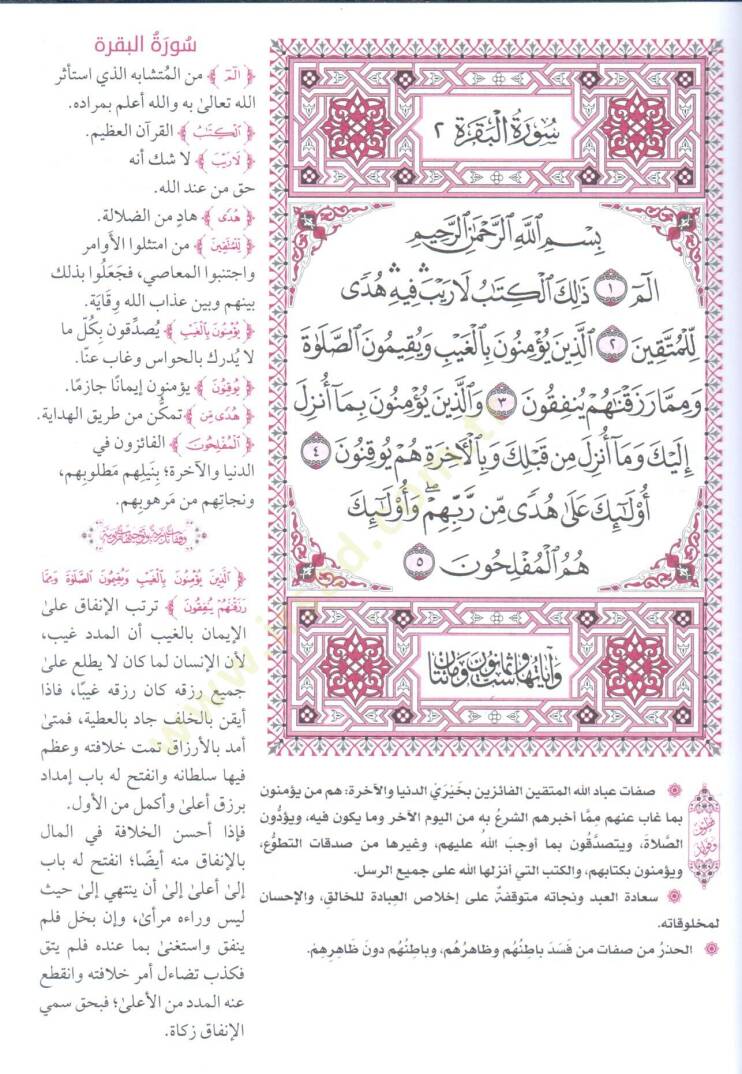 سُورَةُ الْبَقَرَةِ ٢
بِسْمِ اللَّهِ الرَّحْمَٰنِ الرَّحِيمِ
الٓمٓ ١ ذَٰلِكَ الْكِتَٰبُ لَا رَيْبَ ۛ فِيهِ ۛ هُدًى
لِّلْمُتَّقِينَ ٢ الَّذِينَ يُؤْمِنُونَ بِالْغَيْبِ وَيُقِيمُونَ الصَّلَوٰةَ
وَمِمَّا رَزَقْنَٰهُمْ يُنفِقُونَ ٣ وَالَّذِينَ يُؤْمِنُونَ بِمَآ أُنزِلَ
إِلَيْكَ وَمَآ أُنزِلَ مِن قَبْلِكَ وَبِالْأَخِرَةِ هُمْ يُوقِنُونَ ٤
أُولَٰٓئِكَ عَلَىٰ هُدًى مِّن رَّبِّهِمْ ۖ وَأُولَٰٓئِكَ
هُمُ الْمُفْلِحُونَ ٥
وآياتها ست وثمانون ومائتان
سُورَةُ البقرة
﴿الٓمٓ﴾ من المُتشابه الذي استأثر
الله تعالىٰ به والله أعلم بمراده.
﴿الْكِتَٰبُ﴾ القرآن العظيم.
﴿لَا رَيْبَ﴾ لا شك أنه
حق من عند الله.
﴿هُدًى﴾ هادٍ من الضلالة.
﴿لِّلْمُتَّقِينَ﴾ من امتثلوا الأوامر
واجتنبوا المعاصي، فجَعَلُوا بذلك
بينهم وبين عذاب الله وِقَايَة.
﴿يُؤْمِنُونَ بِالْغَيْبِ﴾ يُصدِّقون بِكُلّ ما
لا يُدرك بالحواس وغاب عنّا.
﴿يُوقِنُونَ﴾ يؤمنون إيمانًا جازمًا.
﴿هُدًى مِّن﴾ تمكُّن من طريق الهداية.
﴿الْمُفْلِحُونَ﴾ الفائزون في
الدنيا والآخرة؛ بِنَيلِهم مَطلوبِهم،
ونجاتِهم من مَرهوبِهم.
﴿الَّذِينَ يُؤْمِنُونَ بِالْغَيْبِ وَيُقِيمُونَ الصَّلَوٰةَ وَمِمَّا
رَزَقْنَٰهُمْ يُنفِقُونَ﴾ ترتب الإنفاق علىٰ
الإيمان بالغيب أن المدد غيب،
لأن الإنسان لما كان لا يطلع علىٰ
جميع رزقه كان رزقه غيبًا، فاذا
أيقن بالخلف جاد بالعطية، فمتىٰ
أمد بالأرزاق تمت خلافته وعظم
فيها سلطانه وانفتح له باب إمداد
برزق أعلىٰ وأكمل من الأول.
فإذا أحسن الخلافة في المال
بالإنفاق منه أيضًا؛ انفتح له باب
إلىٰ أعلىٰ إلىٰ أن ينتهي إلىٰ حيث
ليس وراءه مرأىٰ، وإن بخل فلم
ينفق واستغنىٰ بما عنده فلم يتق
فكذب تضاءل أمر خلافته وانقطع
عنه المدد من الأعلىٰ؛ فبحق سمي
الإنفاق زكاة.
صفات عباد الله المتقين الفائزين بخَيْرَيْ الدنيا والآخرة: هم من يؤمنون
بما غاب عنهم مِمَّا أخبرهم الشرعُ به من اليوم الآخر وما يكون فيه، ويؤدُّون
الصَّلاةَ، ويتصدَّقُون بما أوجبَ اللهُ عليهم، وغيرها من صدقات التطوُّع،
ويؤمنون بكتابهم، والكتب التي أنزلها الله على جميع الرسل.
سعادة العبد ونجاته متوقفةٌ على إخلاص العِبادة للخالقِ، والإحسان
لمخلوقاته.
الحذرُ من صفات من فَسَدَ باطِنُهم وظاهرُهُم، وباطِنُهُم دونَ ظاهِرِهِم.